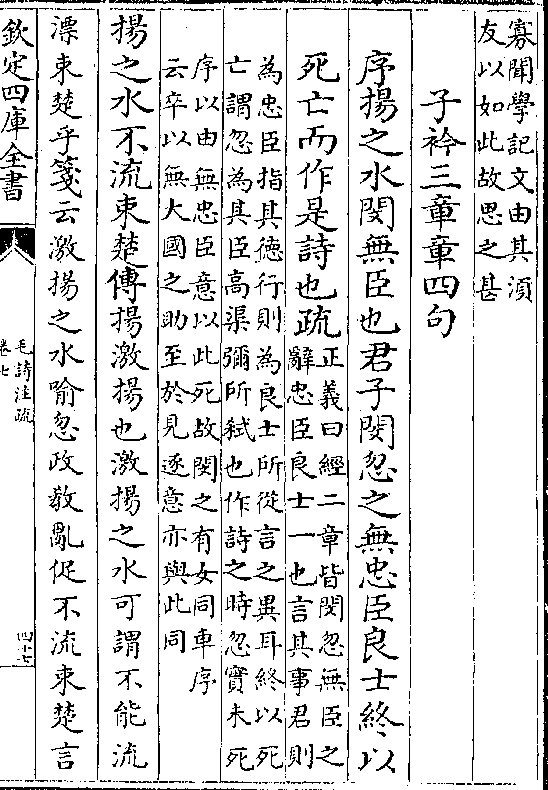 寡聞學記文由其須
友以如此故思之甚
子衿三章章四句
序揚之水閔無臣也君子閔忽之無忠臣良士終以
死亡而作是詩也疏
正義曰經二章皆閔忽無臣之
辭忠臣良士一也言其事君則
為忠臣指其德行則為良士所從言之異耳終以死
亡謂忽為其臣高渠彌所弒也作詩之時忽實未死
序以由無忠臣意以此死故閔之有女同車序
云卒以無大國之助至於見逐意亦與此同
揚之水不流束楚傳揚激揚也激揚之水可謂不能流
漂束楚乎箋云激揚之水喻忽政教亂促不流束楚言
欽定四庫全書
毛詩注疏
卷七
四十七